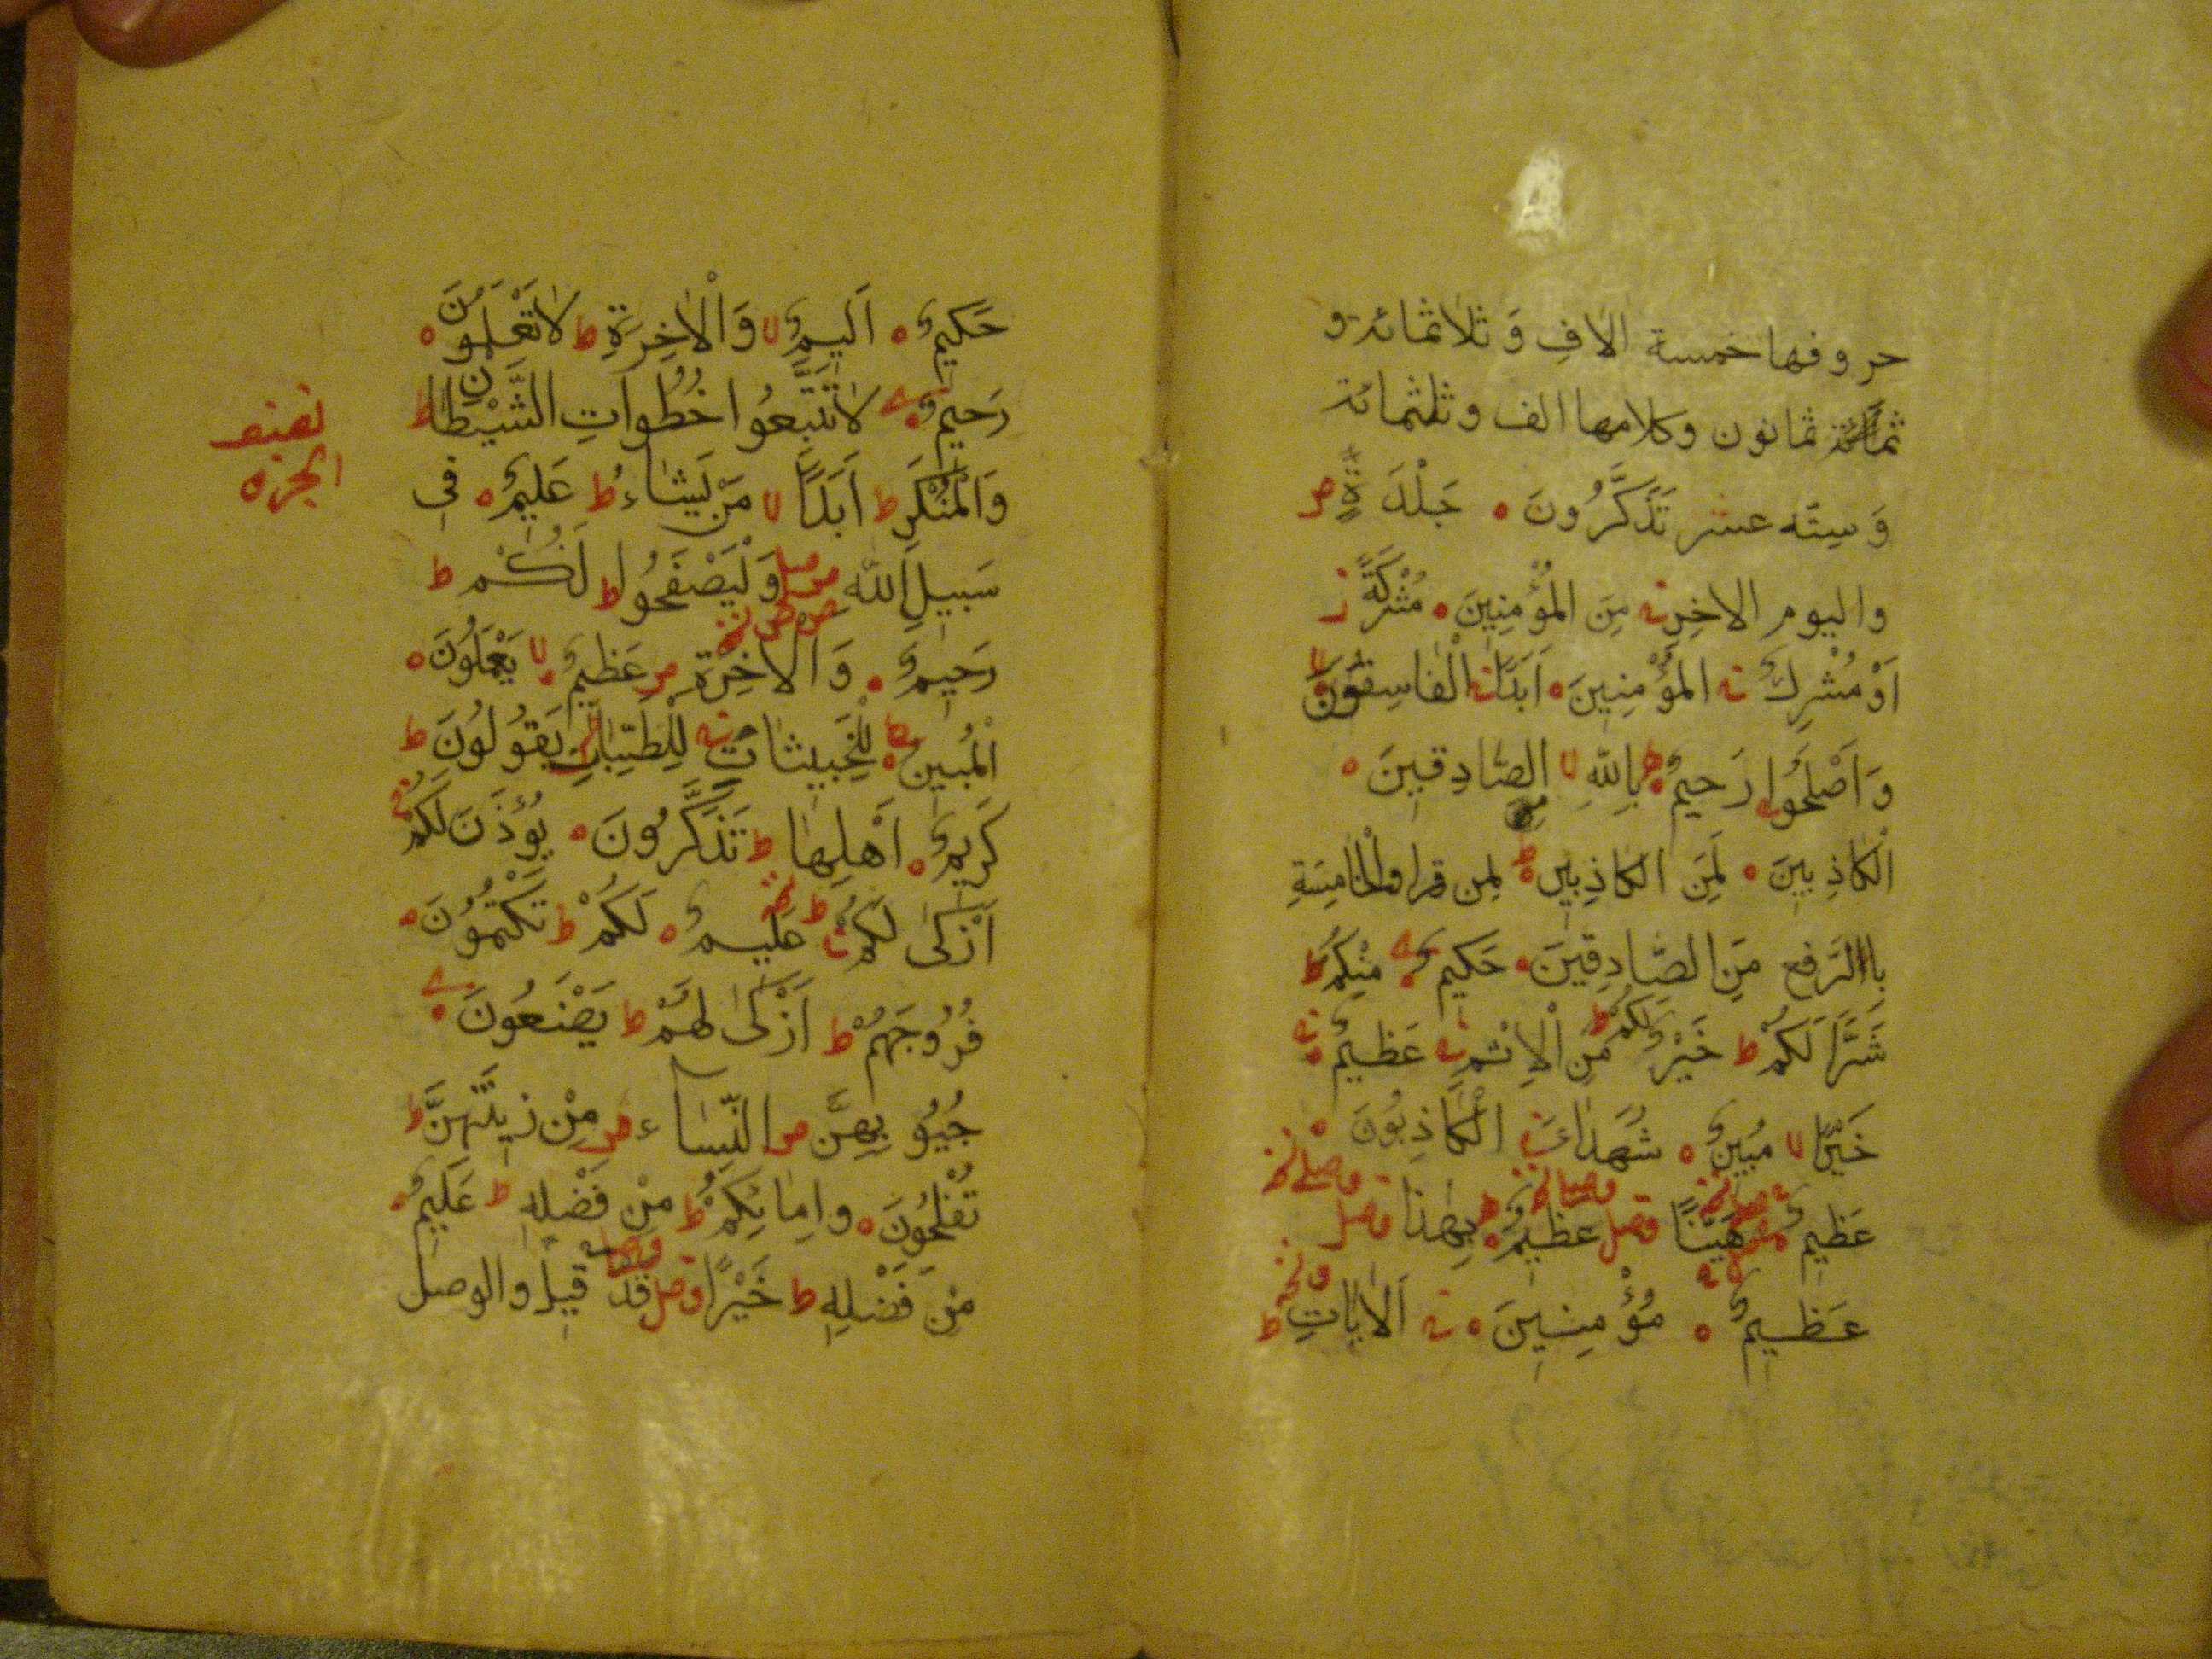 حروفها خمسة الاف وَ ثلاثمائة و
ثمانون وكلامها الف و ثلثمائة
وَ سِتّه عشر تَذَكَّرُونَ ه جَلْدَةٍ ص
واليوم الاخِرِ ج مِنَ المُؤْمِنِينَ ه مُشْرِكَةً ز
اَوْ مُشْرِكٌ ج المُؤْمِنِينَ ه اَبَدًا ج الْفَاسِقُونَ ه لا
وَاَصْلَحُوا ج رَحِيمٌ ه بِاللهِ لا الصَّادِقِينَ ه
الْكَاذِبِينَ ه لَمِنَ الكَاذِبِينَ ط لمن قرا والْخَامِسَةِ
باالرَّفع مِنَ الصَّادِقِينَ ه حَكِيمٌ ه مِنْكُمْ ط
شَرًّا لَكُمْ ط خَيْرٌ لَكُمْ ط مِنَ الْاِثْمِ ج عَظِيمٌ ه
خَيْرًا لا مُبِينٌ ه شُهَدَاءَ ج الْكَاذِبُونَ ه
عَظِيمٌ ه هَيِّنًا قصل عَظِيمٌ ه بِهٰذَا قصل
عَظِيمٌ ه مُؤْمِنِينَ ه ج اَلآيَاتِ ط
حَكِيمٌ ه اَلِيمٌ لا وَالْاٰخِرَةِ ط لَا تَعْلَمُونَ ه
رَحِيمٌ ه لَا تَتَّبِعُوا خُطُوَاتِ الشَّيْطَانِ ط
وَالْمُنْكَرِ ط اَبَدًا لا مَنْ يَشَاءُ ط عَلِيمٌ ه فى
سَبِيلِ اللهِ وَلْيَصْفَحُوا ط لَكُمْ ط
رَحِيمٌ ه وَالْاٰخِرَةِ ص عَظِيمٌ ه لا يَعْمَلُونَ ه
الْمُبِينُ ه لِلْخَبِيثَاتِ ج لِلطَّيِّبَاتِ ج يَقُولُونَ ط
كَرِيمٌ ه اَهْلِهَا ط تَذَكَّرُونَ ه يُؤْذَنَ لَكُمْ ج
اَزْكىٰ لَكُمْ ط عَلِيمٌ ه لَكُمْ ط تَكْتُمُونَ ه
فُرُوجَهُمْ ط اَزْكىٰ لَهُمْ ط يَصْنَعُونَ ه
جُيُوبِهِنَّ ص النِّسَاءِ ص مِنْ زِينَتِهِنَّ ط
تُفْلِحُونَ ه وامائِكُمْ ط مِنْ فَضْلِهِ ط عَلِيمٌ ه
مِنْ فَضْلِهِ ط خَيْرًا قصل قد قيل والوصل
نصف
الجزء